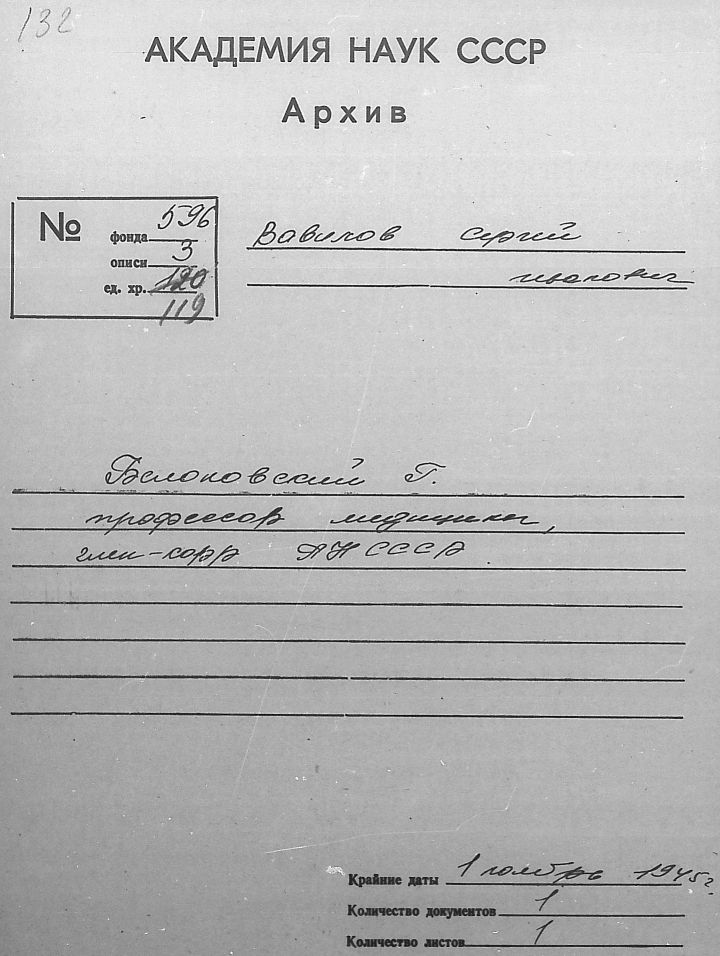 132
АКАДЕМИЯ НАУК СССР
Архив
№
фонда 596
описи 3
ед. хр. 120
119
Вавилов Сергей
Иванович
Белоновский Г.
профессор медицины,
член-корр АН СССР
Крайние даты 1 ноябрь 1945 г.
Количество документов 1
Количество листов 1